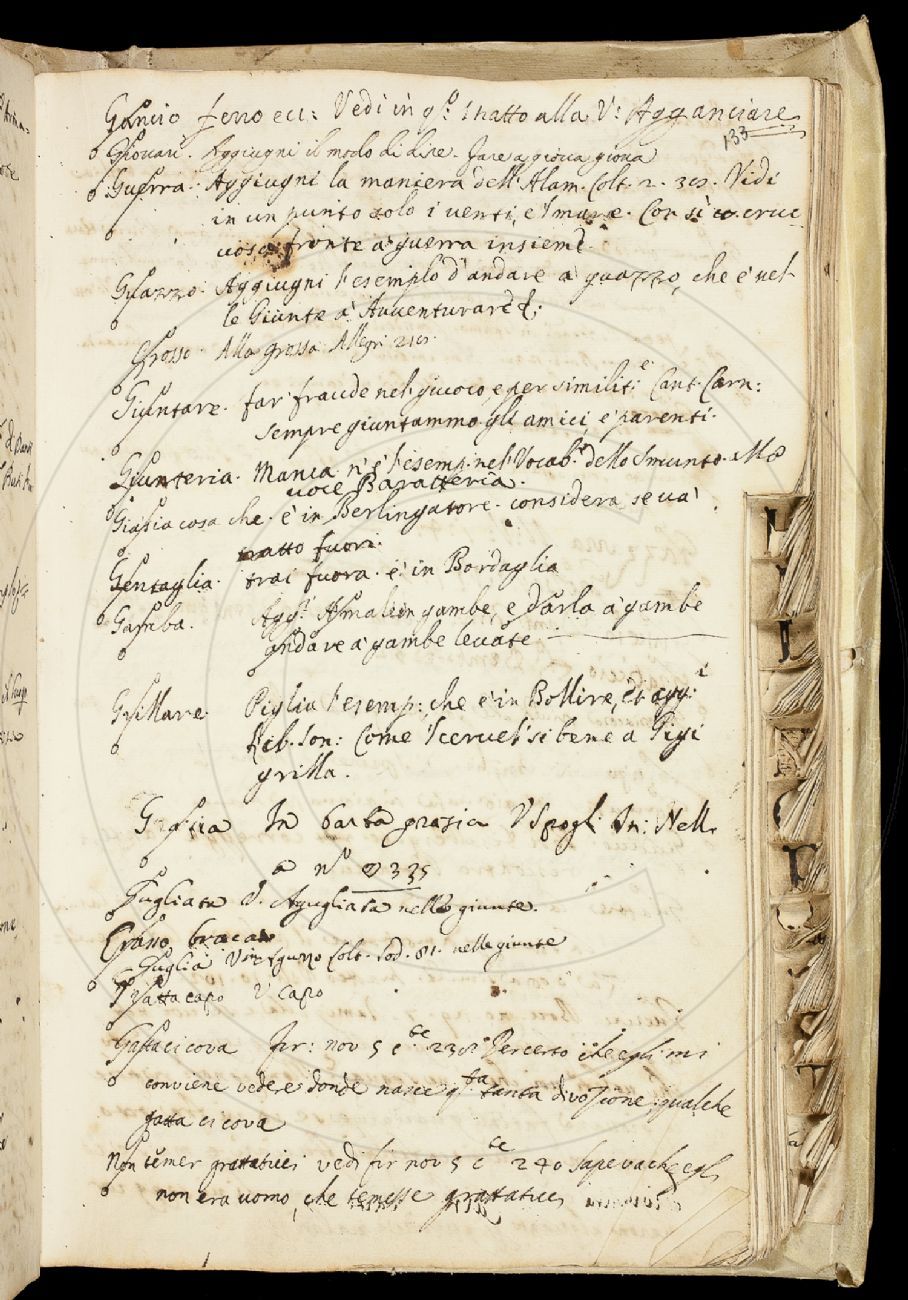 Gancio ferro ecc: Vedi in qo. tratto alla V: Agganciare
133
Giovare. Aggiugni il modo di dire. fare a giova giova
Guerra. Aggiugni la maniera dell'Alam. Colt. 2. Vidi
in un punto solo i venti, e'l mare. Con sì
fronte à guerra insieme.
Guazzo. Aggiugni l'esemplo d'andare à guazzo, che è nel-
le Giunte à Avventurare
Grosso. Alla grossa. Allegri
Giuntare. far fraude nel giuoco e per similit.e Cant. Carn:
sempre giuntammo gli amici, e' parenti.
Giunteria. Manca n'è l'esemp. nel Vocabo. dello Smunto. Ma
voce Baratteria.
Giasia cosa che. è in Berlingatore. considera se và
tratto fuori.
Gentaglia. trai fuora. è in Bordaglia
Gamba. Aggi. in gambe, e Darla à gambe
andare à gambe levate
Grillare. Piglia l'esemp: che è in Bollire, et agg:i
Rib. Son: Come 'l cervel' si bene a Gigi
grilla.
Grascia In barba grascia V Spogl. In: Nell.
a no 335
Gugliata V. Agugliata nelle giunte.
Grano
Guglia V in Colt. Sod. 81. nelle giunte
Grattacapo V capo
Gattacicova fir: nov 5 cte 230 Percerto che egli mi
conviene vedere donde nasce qsta tanta divozione: qualche
gatta ci cova
Non temer grattaticci vedi fir nov 5 cte 240 Sapeva che egli
non era uomo, che temesse grattaticci